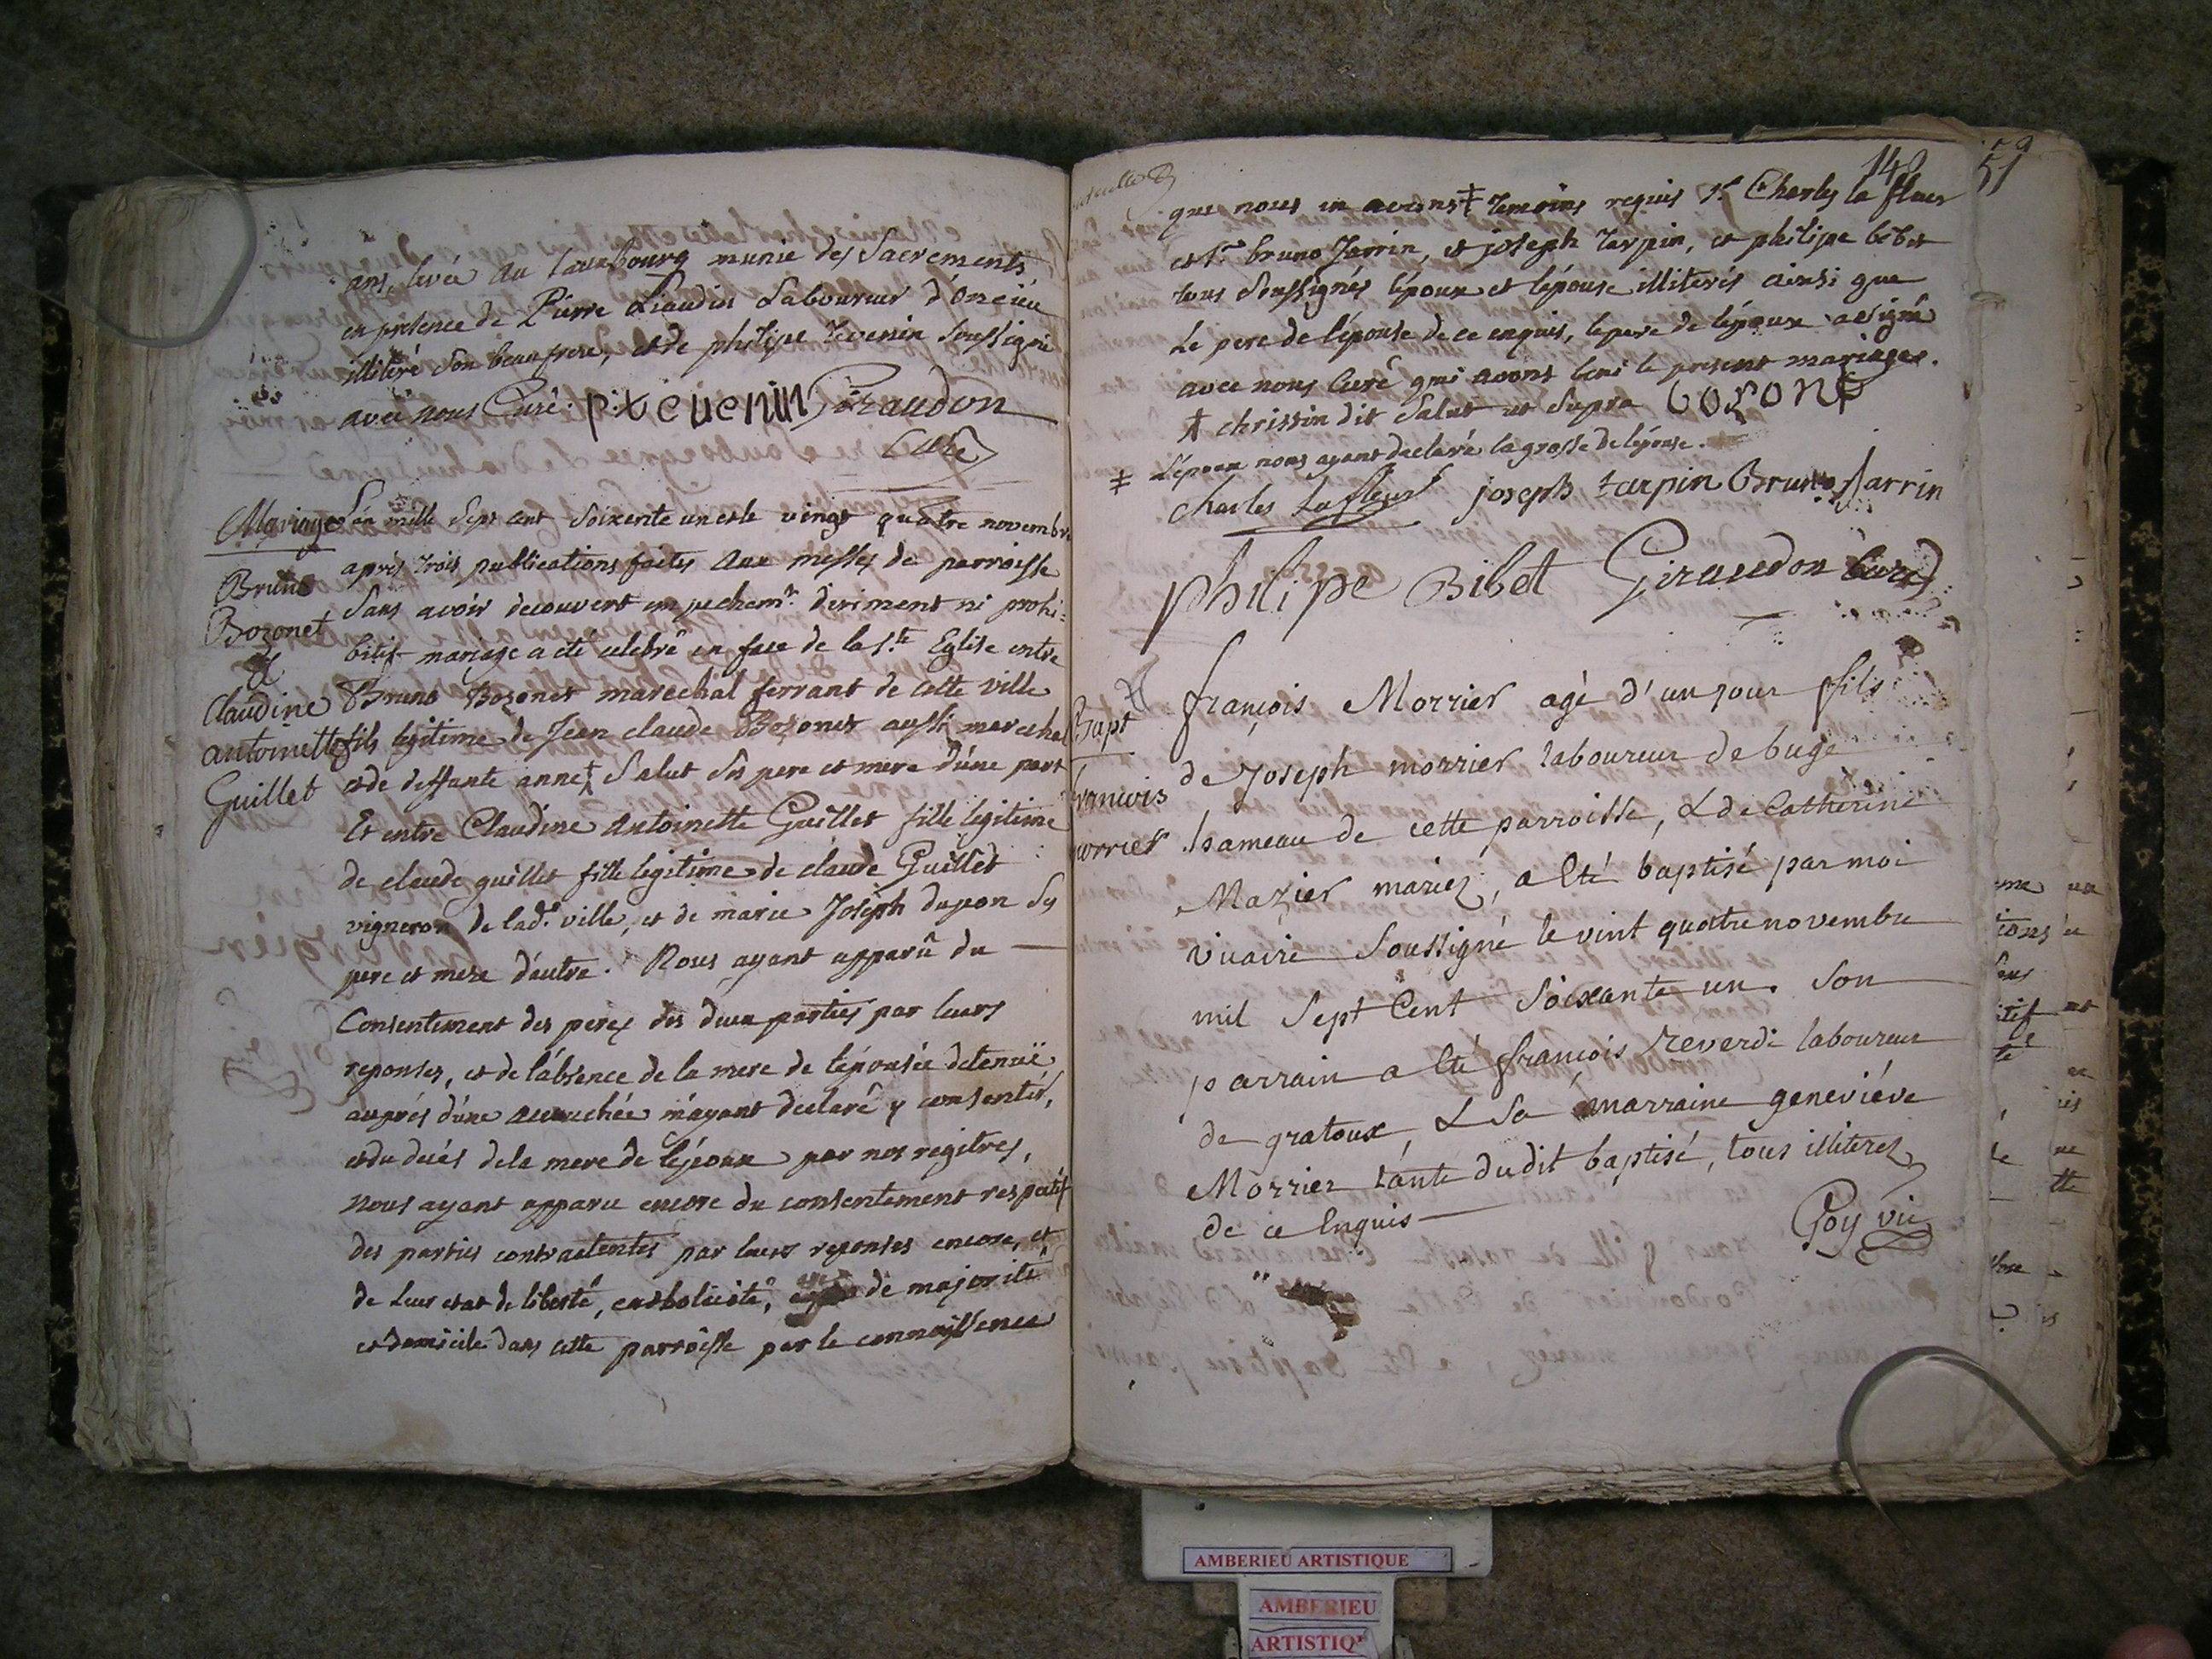 ans, levée au fauxbourg munie des Sacrements
en presence de Pierre Liaudin Laboureur d'oncieu
illiteré son beaufrere, et de philipe Tevenin soussigné
avec nous Curé. p: teuenin Giraudon
Curé
Mariage
Bruno
Bozonet
&
Claudine
antoinette
Guillet
L'an mille Sept cent Soixente un et le vingt quatre novembre
après trois publications faites aux messes de parroisse
Sans avoir decouvert empechemt. diriment ni prohi=
bitif mariage a eté celebré en face de la Ste. Eglise entre
Bruno Bozonet marechal ferrant de cette ville
fils legitime de Jean claude Bozonet aussi marechal
et de deffunte anne ‡ Salut ses pere et mere d'une part
Et entre Claudine antoinette Guillet fille legitime
de claude guillet fille legitime de claude Guillet
vigneron de lade. ville, et de marie Joseph dujeon ses
pere et mere d'autre. Nous ayant apparû du
Consentement des peres des deux parties par leurs
reponses, et de l'absence de la mere de l'épousée detenuë
auprés d'une accouchée m'ayant declaré y consentir,
et du decés de la mere de l'époux par nos regitres,
nous ayant apparu encore du consentement respectif
des parties contractentes par leurs reponses encore, et
de leur etat de liberté, catholicité, de majorité
et domicile dans cette parroisse par la connoissence
149
51
que nous en avons ‡ temoins requis Sr. Charles la fleur
et Sr. bruno Jarrin, et joseph tarpin, et philipe bibet
tous Soussignés l'époux et l'épouse illiterés ainsi que
le pere de l'épouse de ce enquis, le pere de l'époux a signé
avec nous Curé qui avons beni le present mariage.
‡ chrissin dit Salut ut supra boȥone
‡ l'époux nous ayant declaré la grosse de l'épouse.
Charles Lafleur joseph tarpin Bruno Jarrin
philipe Bibet Giraudon Curé
Bapt
francois
morrier
françois Morrier agé d'un jour fils
de Joseph morrier laboureur de buge
hameau de cette parroisse, & de Catherine
Mazier mariez, a été baptisé par moi
vicaire Soussigné le vint quatre novembre
mil Sept Cent Soixante un. Son
parrain a été françois reverdi laboureur
de gratoux, & Sa marraine geneviéve
Morrier tante dudit baptisé, tous illiterez
de ce Enquis
Goy vic
AMBERIEU ARTISTIQUE
AMBERIEU
ARTISTIQ